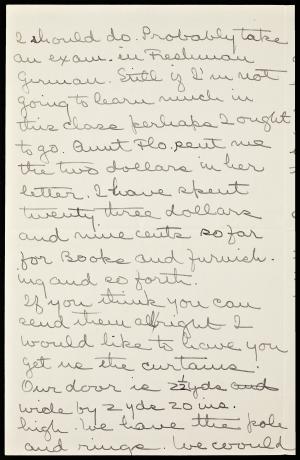 I should do. Probably take
an exam. in Freshman
German. Still if I'm not
going to learn much in
this class perhaps I ought
to go. Aunt Flo. sent me
the two dollars in her
letter. I have spent
twenty three dollars
and nine cents so far
for Books and furnish-
ing and so forth.
If you think you can
send them allright I
would like to have you
get us the curtains.
Our door is 2½yds and
wide by 2 yds 20 ins.
high. We have the pole
and rings. We would